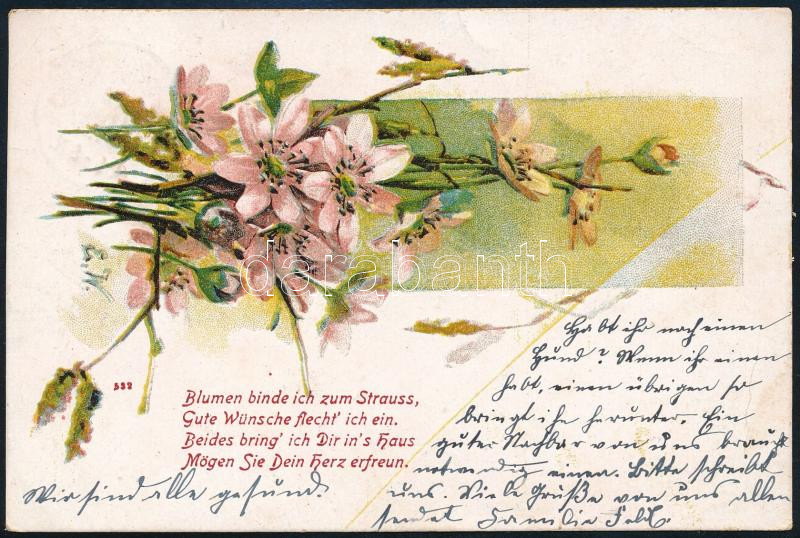 E.W.
darabanth
532
Blumen binde ich zum Strauss,
Gute Wünsche flecht' ich ein.
Beides bring' ich Dir in's Haus
Mögen Sie Dein Herz erfreun.
Wir sind alle gesund.
Habt ihr noch einen
Hund? Wenn ihr einen
habt, einen übrigen so
bringt ihn herunter. Ein
guter Nachbar von uns braucht
notwendig einen. Bitte schreibt
uns. Viele Grüße von uns allen
sendet Familie